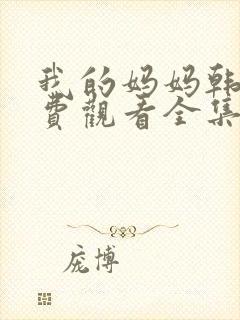 我的妈妈韩
费觀看全集
庞博